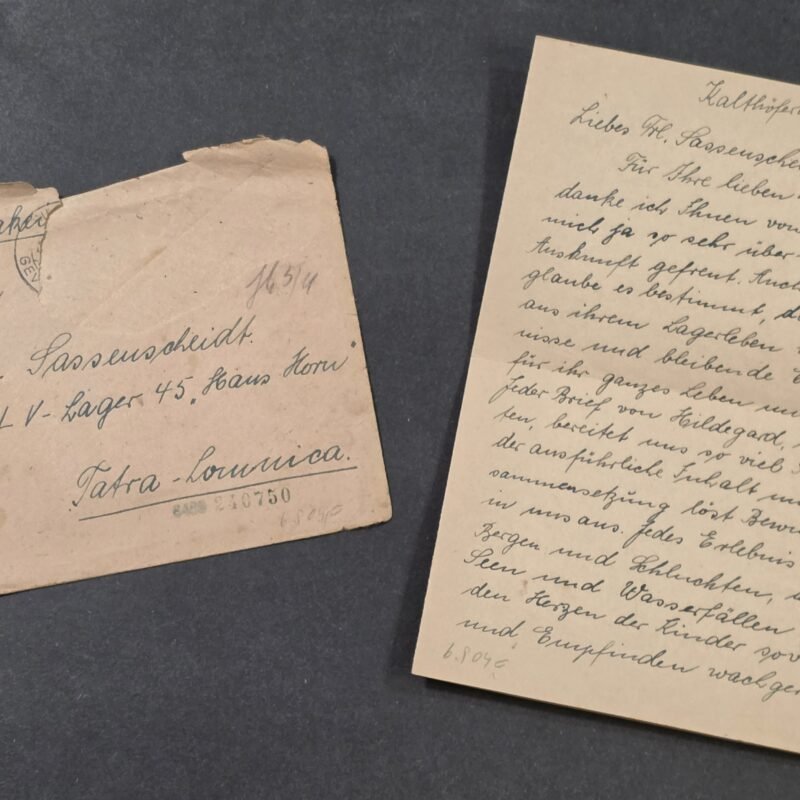 GEN
Sassenscheidt.
V-Lager 45 „Haus Horn"
Tatra-Lomnica.
240750
6.804
Kalthöfer
Liebes Frl. Sassenschei
Für Ihre lieben
danke ich Ihnen von
mich ja so sehr über
Auskunft gefreut. Auch
glaube es bestimmt, d
aus ihrem Lagerleben
nisse und bleibende E
für ihr ganzes Leben mi
Jeder Brief von Hildegard,
ten, bereitet uns so viel
der ausführliche Inhalt un
sammensetzung löst Bewu
in uns aus. Jedes Erlebnis
Bergen und Schluchten, u
Seen und Wasserfällen
den Herzen der Kinder sov
und Empfinden wachger
6.804